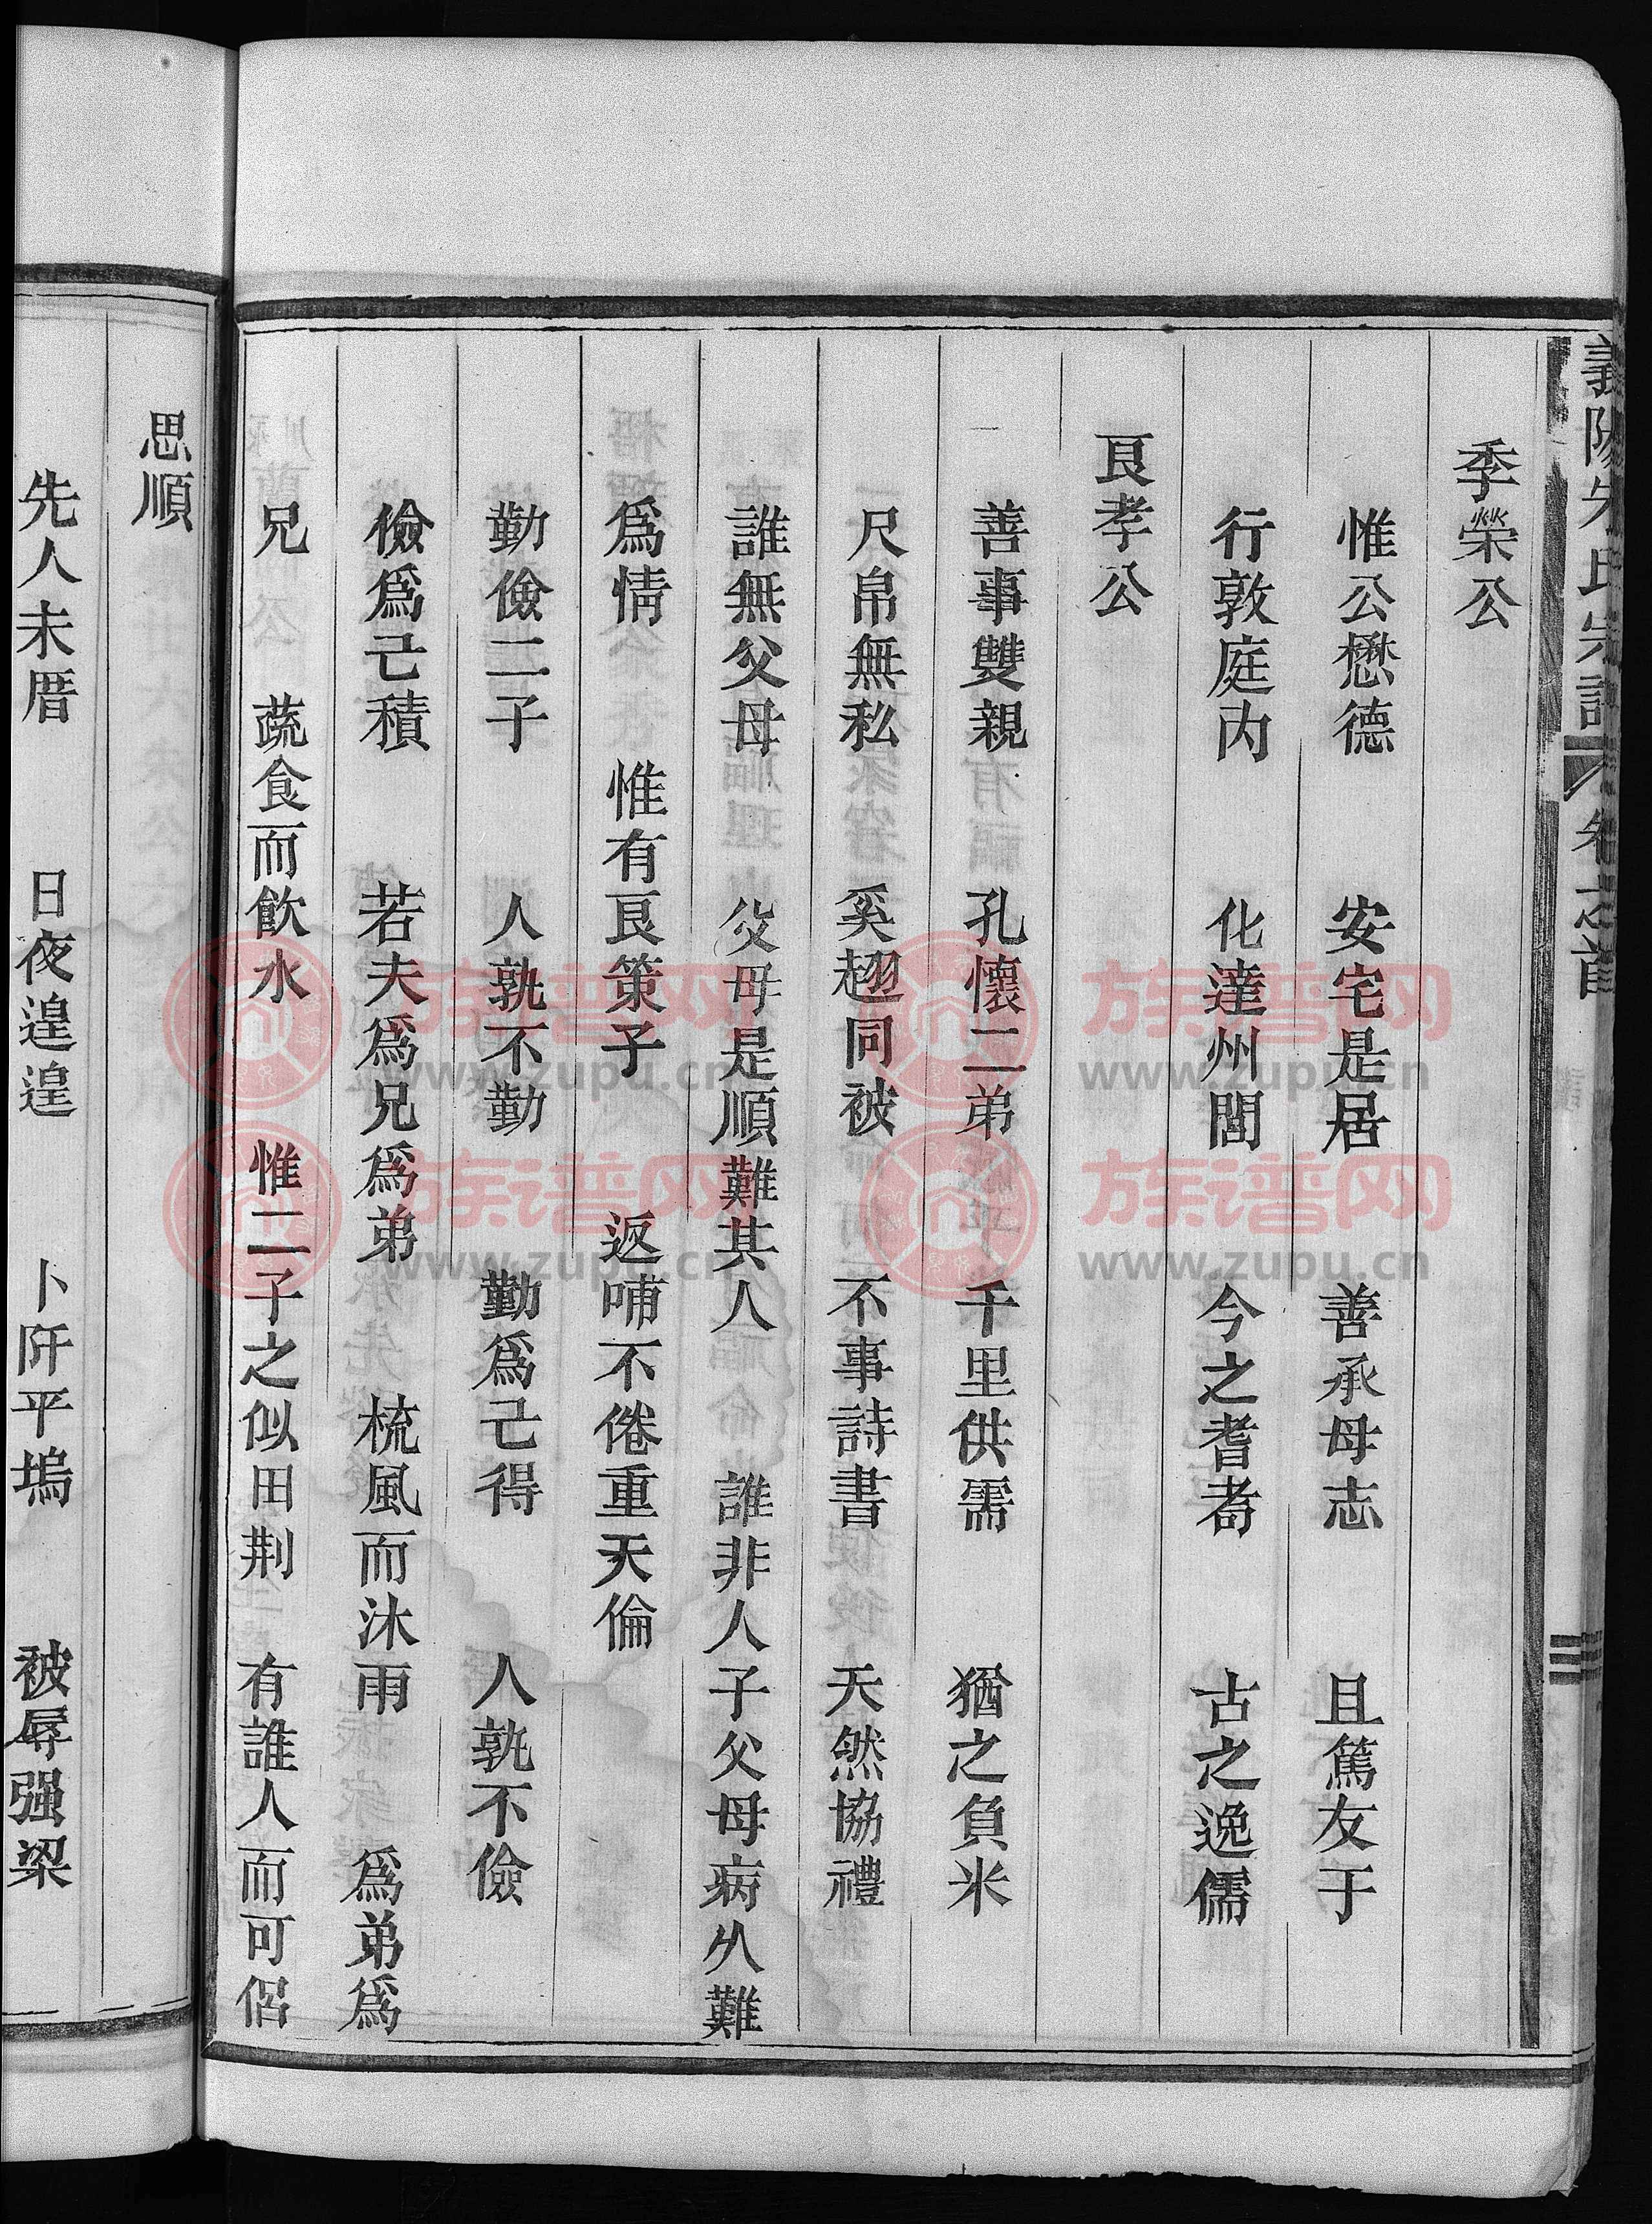 義陽朱氏宗譜 卷之首
季榮公
惟公懋德 安宅是居 善承母志 且篤友于
行敦庭內 化達州閭 今之耆耇 古之逸儒
艮孝公
善事雙親 孔懷二弟 千里供需 猶之負米
尺帛無私 奚趐同被 不事詩書 天然協禮
誰無父母 父母是順難其人 誰非人子父母病久難
爲情 惟有艮策子 返哺不倦重天倫
勤儉二子 人孰不勤 勤爲己得 人孰不儉
儉爲己積 若夫爲兄爲弟 梳風而沐雨 爲弟爲
兄 蔬食而飲水 惟二子之似田荆 有誰人而可侶
思順
先人未厝 日夜遑遑 卜阡平塢 被辱强梁
族谱网
www.zupu.cn
族谱网
www.zupu.cn
族谱网
www.zupu.cn
族谱网
www.zupu.cn